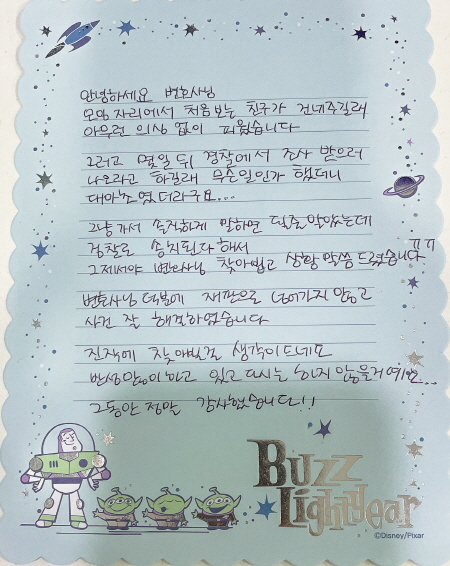 안녕하세요 변호사님
모임 자리에서 처음 보는 친구가 건네주길래
아무런 의심 없이 피웠습니다
그러고 몇일 뒤 경찰에서 조사 받으러
나오라고 하길래 무슨일인가 했더니
대마초였더라구요...
그냥 가서 솔직하게 말하면 될줄 알았는데
검찰로 송치된다 해서
그제서야 변호사님 찾아뵙고 상황 말씀 드렸습니다 ㅠㅠ
변호사님 덕분에 재판으로 넘어가지 않고
사건 잘 해결하였습니다
진작에 찾아뵐걸 생각이 드네요
반성많이하고 있고 다시는 하지 않을거예요...
그동안 정말 감사했습니다!!
BUZZ
Lightyear
©Disney/Pixar